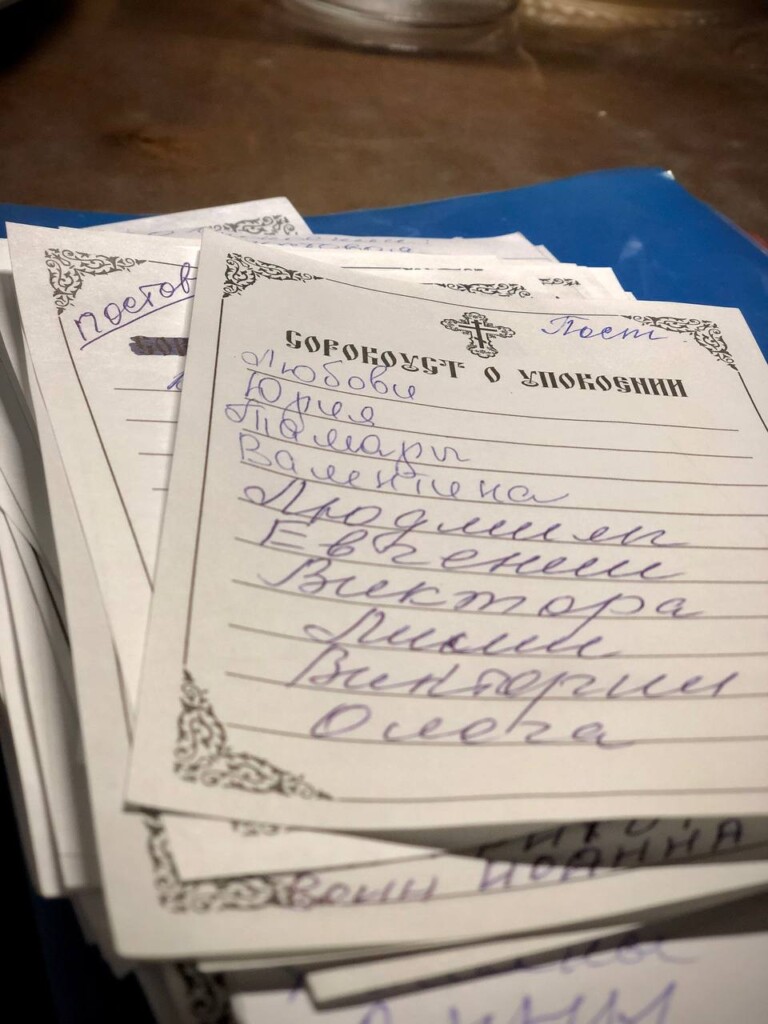 постов
Пост
СОРОКОУСТ О УПОКОЕНИИ
Любови
Юрия
Тамары
Валентина
Людмилы
Евгении
Виктора
Лилии
Виктории
Олега
воин ИОАННА